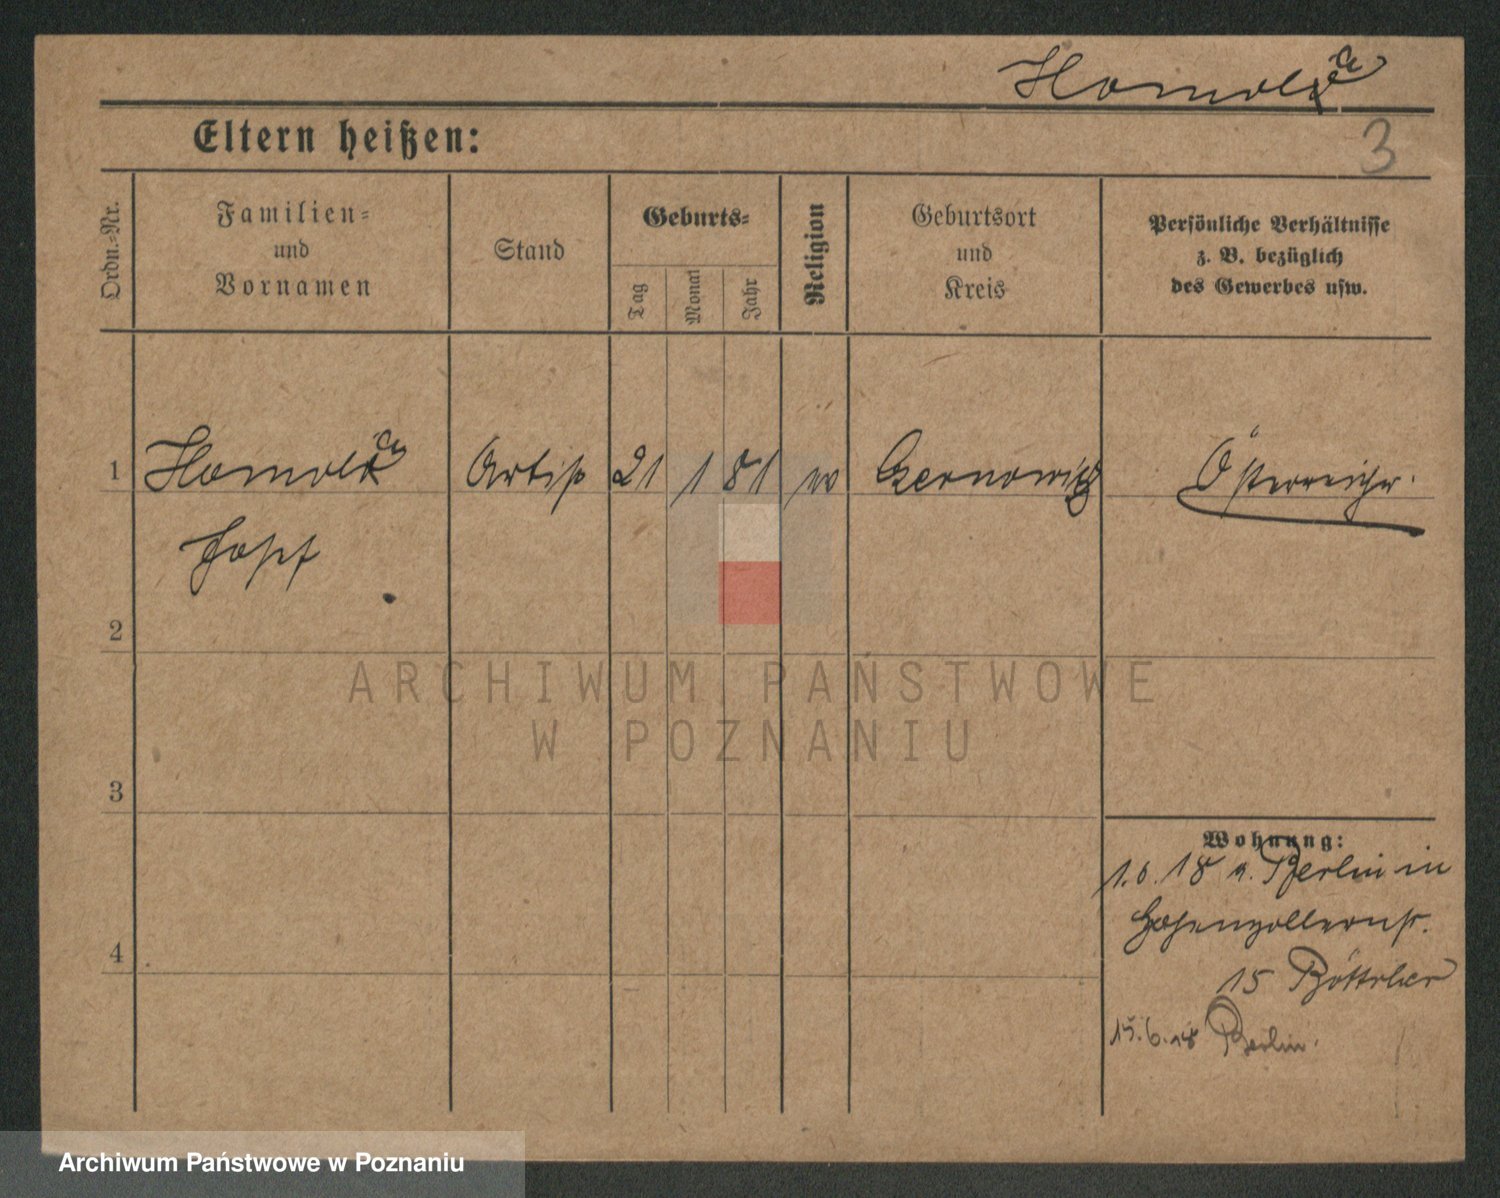 Homolka
3
Eltern heißen:
Ordn.-Nr.
Familien-
und
Vornamen
Stand
Geburts-
Tag
Monat
Jahr
Religion
Geburtsort
und
Kreis
Persönliche Verhältnisse
z. B. bezüglich
des Gewerbes usw.
1 Homolka Artist 21 1 81 Czernowitz Österreicher.
Josef
2
3
4
Wohnung:
1.6.18 v. Berlin in
Hohenzollernstr.
15 Böttcher
15.6.18 Berlin.
ARCHIWUM PAŃSTWOWE
W POZNANIU
Archiwum Państwowe w Poznaniu